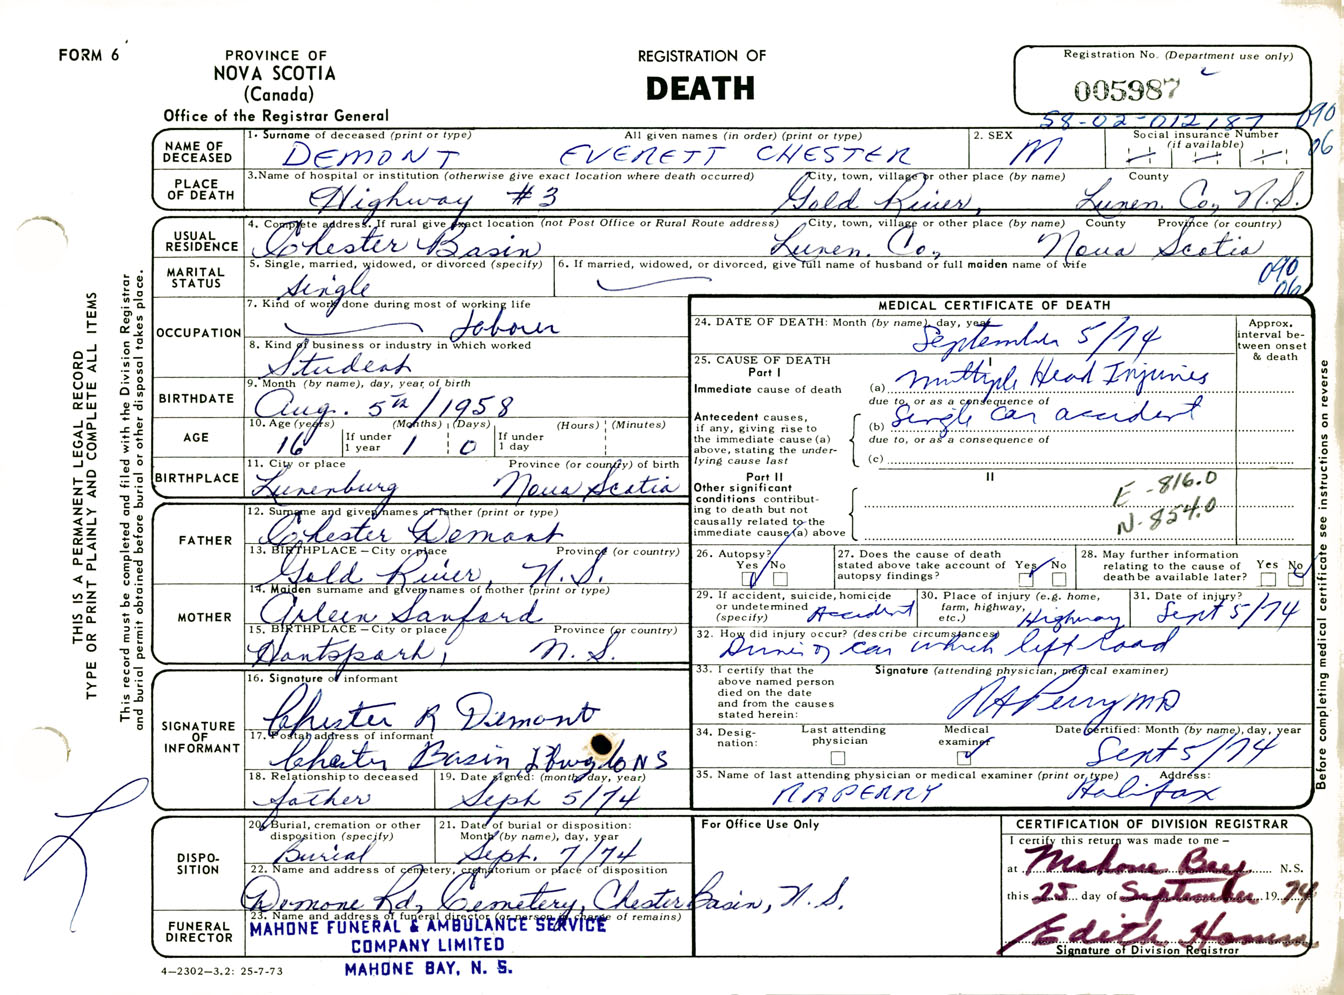 FORM 6
PROVINCE OF
NOVA SCOTIA
(Canada)
Office of the Registrar General
REGISTRATION OF
DEATH
Registration No. (Department use only)
005987
58-02-012187
090
06
NAME OF
DECEASED
1. Surname of deceased (print or type) All given names (in order) (print or type)
DEMONT EVERETT CHESTER
2. SEX
M
Social insurance Number
(if available)
PLACE
OF DEATH
3. Name of hospital or institution (otherwise give exact location where death occurred) City, town, village or other place (by name) County
Highway #3 Gold River, Lunen. Co, N.S.
USUAL
RESIDENCE
4. Complete address. If rural give exact location (not Post Office or Rural Route address) City, town, village or other place (by name) County Province (or country)
Chester Basin Lunen. Co, Nova Scotia
MARITAL
STATUS
5. Single, married, widowed, or divorced (specify)
Single
6. If married, widowed, or divorced, give full name of husband or full maiden name of wife
090
06
OCCUPATION
7. Kind of work done during most of working life
Labourer
8. Kind of business or industry in which worked
Student
BIRTHDATE
9. Month (by name), day, year of birth
Aug. 5th/1958
AGE
10. Age (years) (Months) (Days) (Hours) (Minutes)
16 If under
1 year 1 0 If under
1 day
BIRTHPLACE
11. City or place Province (or country) of birth
Lunenburg Nova Scotia
FATHER
12. Surname and given names of father (print or type)
Chester Demont
13. BIRTHPLACE – City or place Province (or country)
Gold River, N.S.
MOTHER
14. Maiden surname and given names of mother (print or type)
Arleen Sanford
15. BIRTHPLACE – City or place Province (or country)
Hantsport, N.S.
SIGNATURE
OF
INFORMANT
16. Signature of informant
Chester R Demont
17. Postal address of informant
Chester Basin NS
18. Relationship to deceased
father
19. Date signed: (month, day, year)
Sept 5/74
DISPO-
SITION
20. Burial, cremation or other
disposition (specify)
Burial
21. Date of burial or disposition:
Month (by name), day, year
Sept. 7/74
22. Name and address of cemetery, crematorium or place of disposition
Demone Rd, Cemetery, Chester Basin, N.S.
FUNERAL
DIRECTOR
23. Name and address of funeral director (or person in charge of remains)
MAHONE FUNERAL & AMBULANCE SERVICE
COMPANY LIMITED
MAHONE BAY, N. S.
4–2302–3.2: 25-7-73
MEDICAL CERTIFICATE OF DEATH
24. DATE OF DEATH: Month (by name), day, year
September 5/74
Approx.
interval be-
tween onset
& death
25. CAUSE OF DEATH
Part I
Immediate cause of death
(a) Multiple Head Injuries
due to, or as a consequence of
Antecedent causes,
if any, giving rise to
the immediate cause (a)
above, stating the under-
lying cause last
(b) Single car accident
due to, or as a consequence of
(c)
Part II
Other significant
conditions contribut-
ing to death but not
causally related to the
immediate cause (a) above
II
E-816.0
N-854.0
26. Autopsy?
Yes No
27. Does the cause of death
stated above take account of
autopsy findings?
Yes No
28. May further information
relating to the cause of
death be available later?
Yes No
29. If accident, suicide, homicide
or undetermined
(specify)
Accident
30. Place of injury (e.g. home,
farm, highway,
etc.)
Highway
31. Date of injury?
Sept 5/74
32. How did injury occur? (describe circumstances)
Driver of car which left road
33. I certify that the
above named person
died on the date
and from the causes
stated herein:
Signature (attending physician, medical examiner)
RA Perry MD
34. Desig-
nation:
Last attending
physician
Medical
examiner
Date certified: Month (by name), day, year
Sept 5/74
35. Name of last attending physician or medical examiner (print or type) Address:
R A PERRY Halifax
For Office Use Only
CERTIFICATION OF DIVISION REGISTRAR
I certify this return was made to me –
at Mahone Bay N.S.
this 25 day of September 1974
Edith
Signature of Division Registrar
THIS IS A PERMANENT LEGAL RECORD
TYPE OR PRINT PLAINLY AND COMPLETE ALL ITEMS
This record must be completed and filed with the Division Registrar
and burial permit obtained before burial or other disposal takes place.
Before completing medical certificate see instructions on reverse